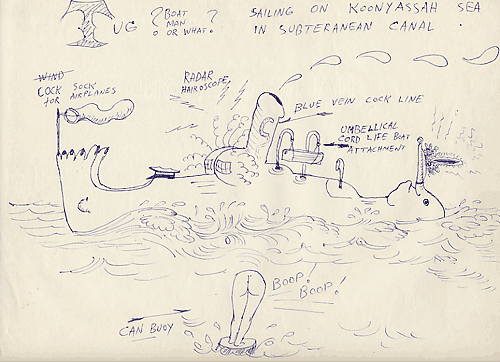 TUG ? BOAT MAN OR WHAT. ?
SAILING ON KOONYASSAH SEA
IN SUBTERANEAN CANAL.
WIND
COCK SOCK
FOR AIRPLANES
RADAR
HAIROSCOPE
BLUE VEIN COCK LINE
UMBELLICAL
CORD LIFE BOAT
ATTACHMENT
BOOP!
BOOP!
CAN BUOY